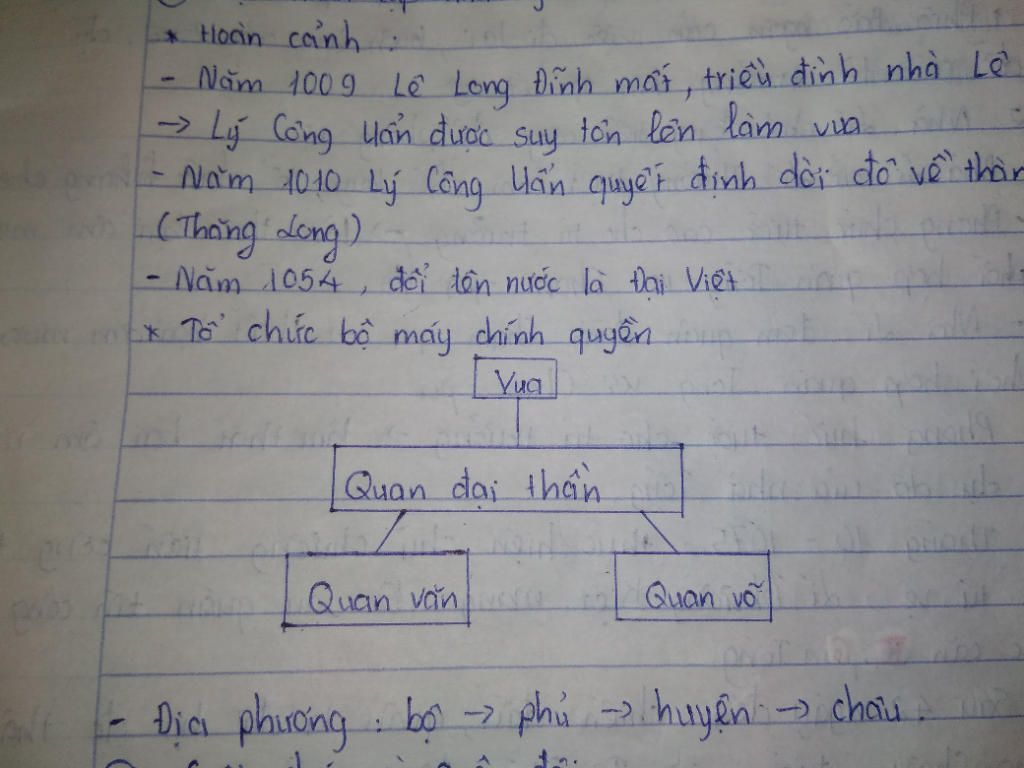 * Hoàn cảnh :
- Năm 1009 Lê Long Đĩnh mất, triều đình nhà Lê
-> Lý Công Uẩn được suy tôn lên làm vua
- Năm 1010 Lý Công Uẩn quyết định dời đô về
(Thăng Long)
- Năm 1054, đổi tên nước là Đại Việt
* Tổ chức bộ máy chính quyền
Vua
Quan đại thần
Quan văn
Quan võ
- Địa phương : bộ -> phủ -> huyện -> châu.